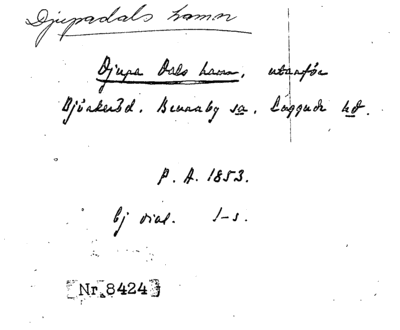 Djupadals hamn
Djupa Dals hamn, utanför
Björkeröd. Brunnby sn. Luggude hd.
P. A. 1853.
Ej dial. 1-s.
Nr 8424